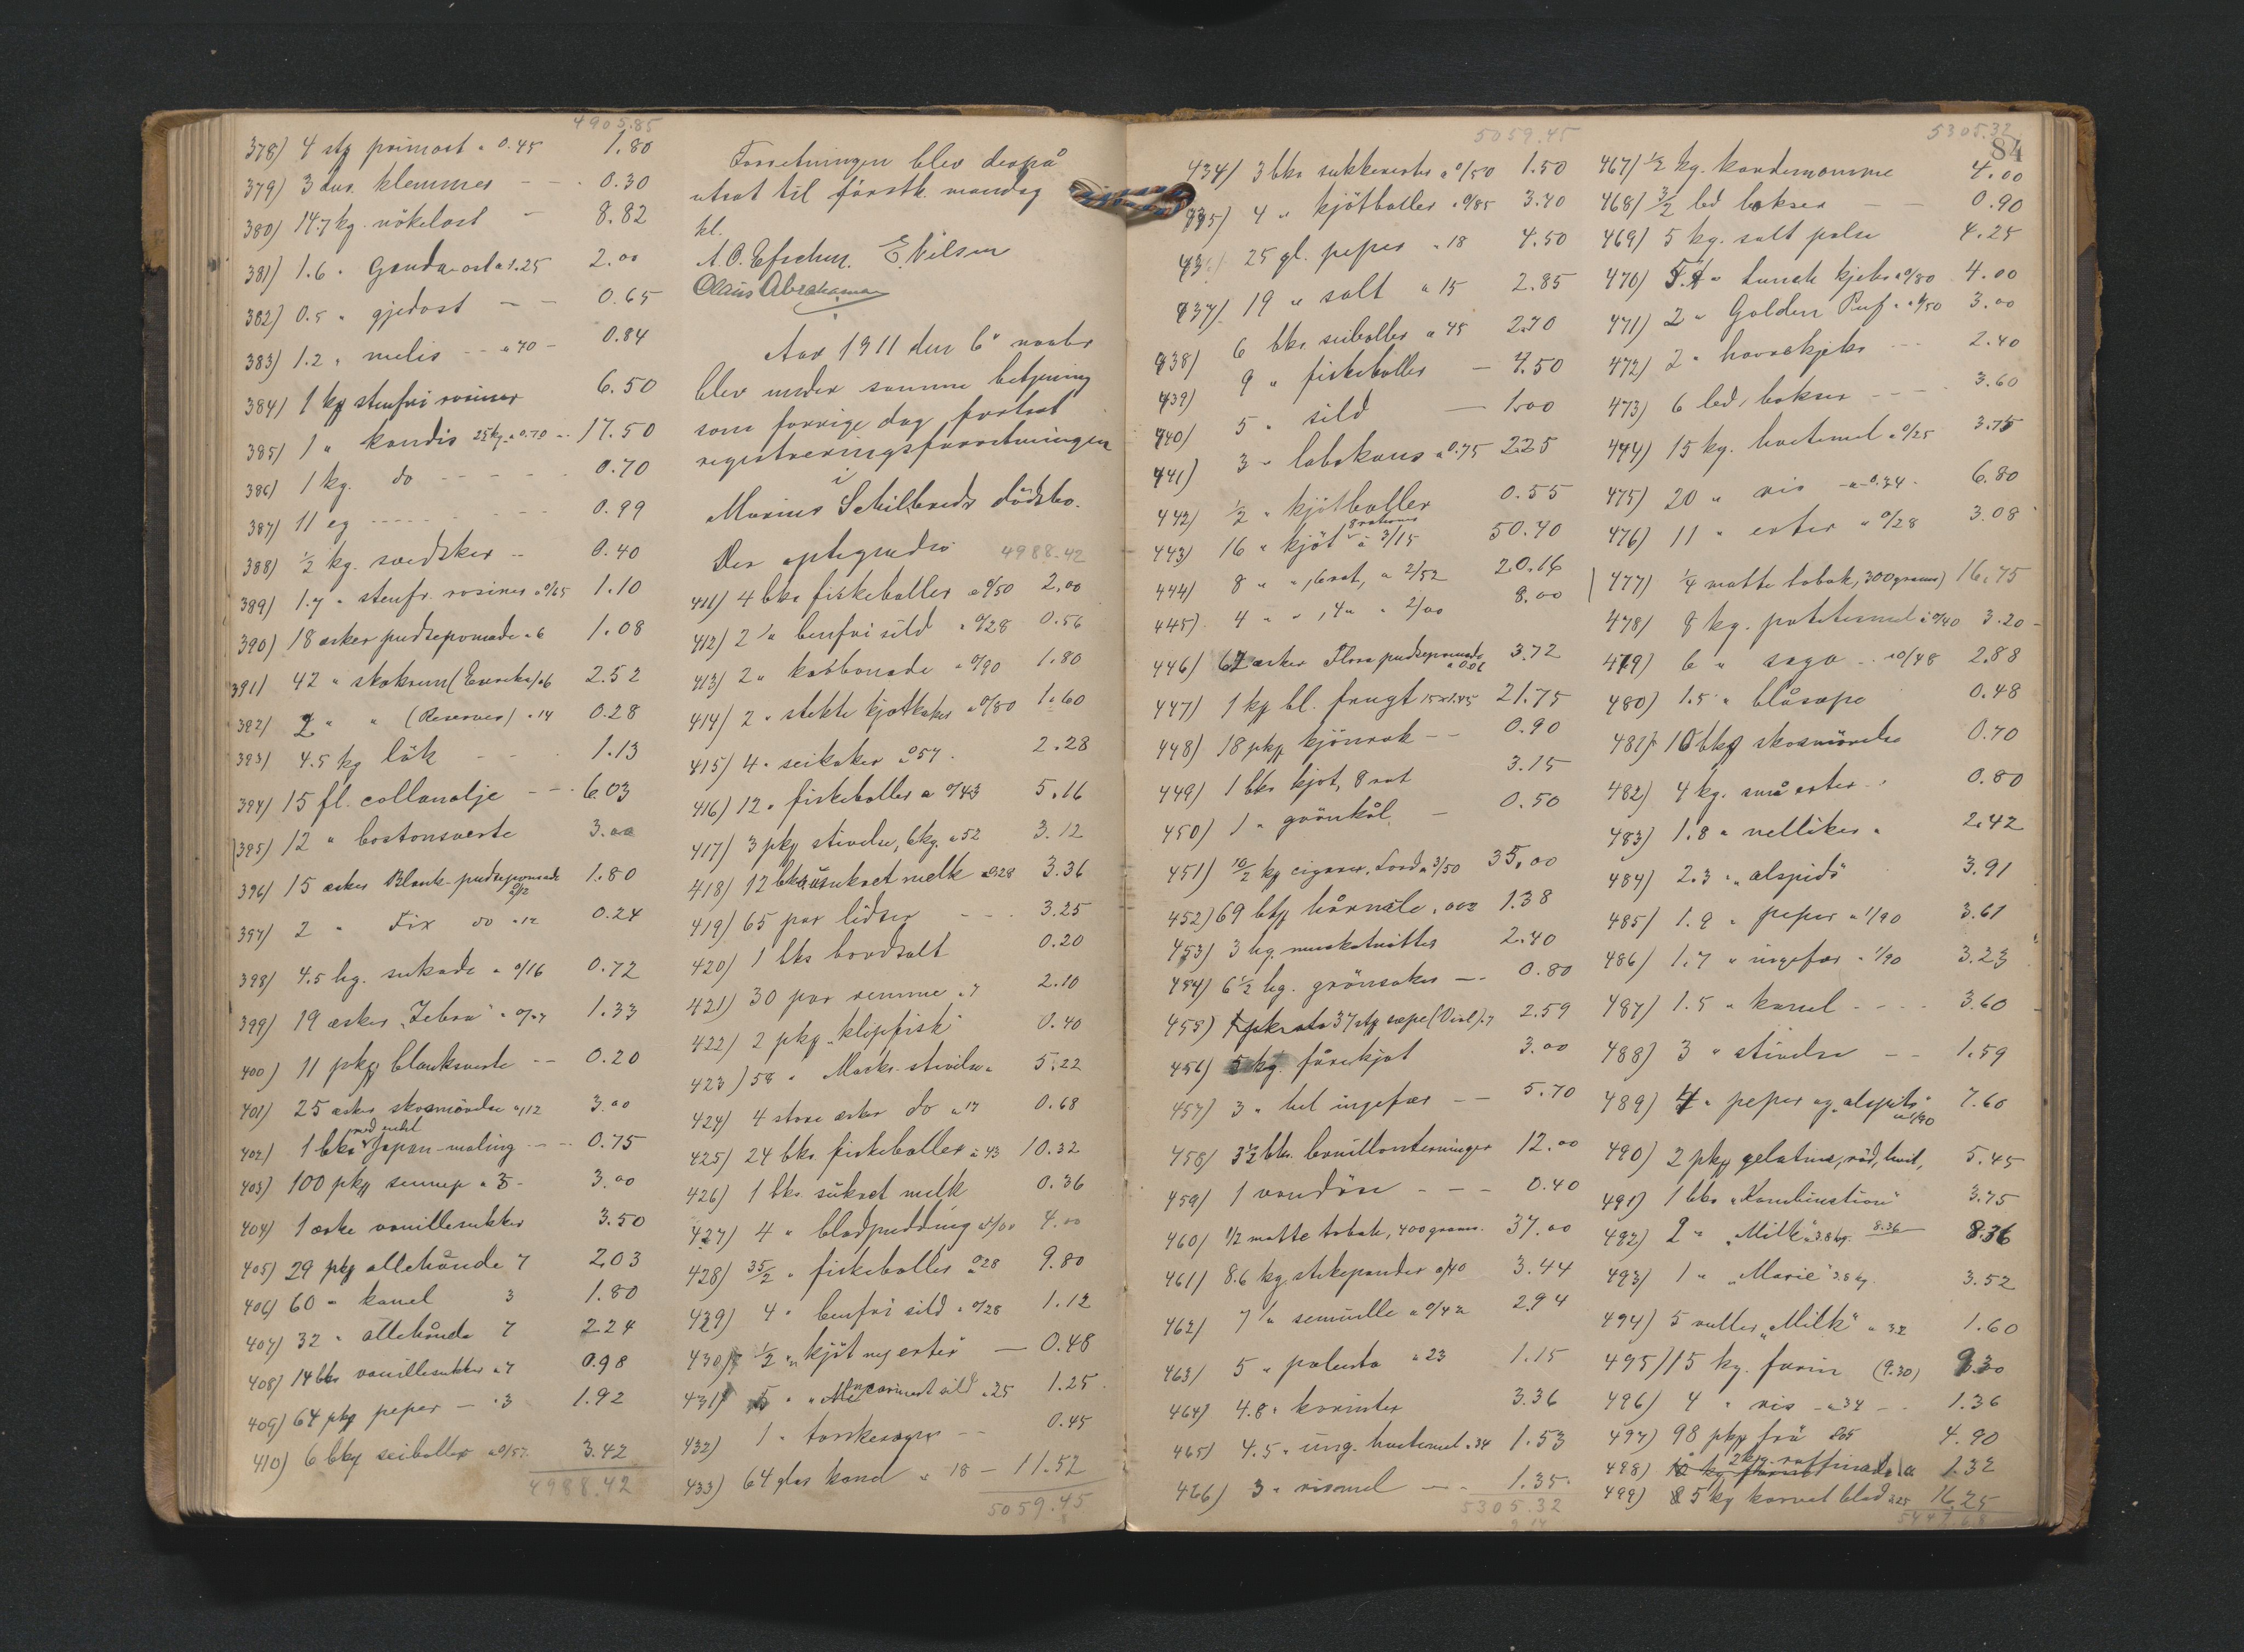 4905.85
378) 4 stg primost a 0.45 1.80
379) 3 dus. klemmer - - 0.30
380) 14.7 kg. nökelost - 8.82
381) 1.6 " Gauda-ost a 1.25 2.00
382) 0.5 " gjedost - - 0.65
383) 1.2 " melis - - a 70 - 0.84
384) 1 kg stenfri rosiner 6.50
385) 1 " kandis 25 kg. a 0.70 - 17.50
386) 1 kg. do - - - - 0.70
387) 11 eg - - - - - 0.99
388) 1/2 kg. svedsker - 0.40
389) 1.7 " stenfr. rosiner a 0/65 1.10
390) 18 æsker pudsepomade a 6 1.08
391) 42 " skokrem (Eureka) a 6 2.52
392) 2 " " (Reserver) a 14 0.28
393) 4.5 kg lök - - 1.13
394) 15 fl. collanolje - - 6.03
395) 12 " bostonsverte 3.00
396) 15 æsker Blank-pudsepomade a 12 1.80
397) 2 " Fix do a 12 0.24
398) 4.5 hg. sukade a 0/16 0.72
399) 19 æsker "Zebra" a 0/07 1.33
400) 11 pkg blanksverte - - 0.20
401) 25 æsker skosmörelse a 0/12 3.00
402) 1 bks Japan-maling - - 0.75
403) 100 pkg sennep a 3 - 3.00
404) 1 æske vanillesukker 3.50
405) 29 pkg allehånde 7 2.03
406) 60 " kanel 3 1.80
407) 32 " allehånde 7 2.24
408) 14 bks vanillesukker a 7 0.98
409) 64 pkg peper - a 3 1.92
410) 6 bkg seiboller a 0/57 3.42
4988.42
Forretningen blev derpå
utsat til förstk. mandag
kl.
E. Nilsen
Claus Abrahamsen
Aar 1911 den 6te novbr
blev under samme betjening
som forrige dag fortsat
registreringsforretningen
i
Marius Schilbreds dödsbo.
Der optegnedes 4988.42
411) 4 bks fiskeboller a 0/50 2.00
412) 2 " benfri sild a 0/28 0.56
413) 2 " karbonade a 0/90 1.80
414) 2 " stekte kjötkaker a 0/80 1.60
415) 4 " seikaker a 57 2.28
416) 12 " fiskeboller a 0/43 5.16
417) 3 pkg stivelse, 6 kg. a 52 3.12
418) 12 bks usukret melk a 0.28 3.36
419) 65 par lidser - - - 3.25
420) 1 bks bordsalt 0.20
421) 30 par remme a 7 2.10
422) 2 pkg "klipfisk" 0.40
423) 58 " Macks stivelse a 5.22
424) 4 store æsker do a 17 0.68
425) 24 bks. fiskeboller a 43 10.32
426) 1 bks sukret melk 0.36
427) 4 " blodpudding a 1/00 4.00
428) 35/2 " fiskeboller a 0/28 9.80
429) 4 " benfri sild a 0/28 1.12
430) 1/2 " kjöt og erter — 0.48
431) 5 " marineret sild a 25 1.25
432) 1 " torskerogn - - 0.45
433) 64 glas kanel a 18 - 11.52
5059.45
5059.45
434) 3 bks sukkererter a 0/50 1.50
435) 4 " kjötboller a 0/85 3.40
436) 25 gl. peper a 18 4.50
437) 19 " salt a 15 2.85
438) 6 bks seiboller a 45 2.70
439) 9 " fiskeboller — 4.50
440) 5 " sild — 1.00
441) 3 " labskaus a 0.75 2.25
442) 1/2 " kjötboller 0.55
443) 16 " kjöt 8 rations a 3/15 50.40
444) 8 " " , 6 rat, a 2/52 20.16
445) 4 " " , 4 " a 2/00 8.00
446) 62 æsker Flora pudsepomade a 0.06 3.72
447) 1 kg bl. frugt 15 x 1.45 21.75
448) 18 pkg kjönrok - - 0.90
449) 1 bks kjöt, 8 rat 3.15
450) 1 " grönkål - 0.50
451) 10/2 kg cigarer. Lord a 3/50 35.00
452) 69 btg hårnåle a 002 1.38
453) 3 hg. muskatnötter 2.40
454) 6 1/2 hg. grönsaker - - 0.80
455) 37 stg sæpe (Viol) a 7 2.59
456) 5 kg. fårekjöt 3.00
457) 3 " hel ingefær - - 5.70
458) 3 1/2 bks. bouillonterninger 12.00
459) 1 vandöse - - - 0.40
460) 1/2 matte tobak, 400 grams. 37.00
461) 8.6 kg stekepander a 0/40 3.44
462) 7 " semulle a 0/42 2.94
463) 5 " polenta a 23 1.15
464) 4.8 " korinter 3.36
465) 4.5 " ung. hvetemel a 34 1.53
466) 3 " rismel - - 1.35
5305.32
5305.32
84
467) 1/2 kg. kardemomme 4.00
468) 3/2 led bokser - - 0.90
469) 5 kg. salt pølse 4.25
470) 5.4 " Lunch kjeks a 0/80 4.00
471) 2 " Golden Puf a 1/50 3.00
472) 2 " havrekjeks - - 2.40
473) 6 led. bokser - - - 3.60
474) 15 kg. hvetemel a 0/25 3.75
475) 20 " ris - a 0.34 - 6.80
476) 11 " erter a 0/28 3.08
477) 1/4 matte tobak, 300 grams) 16.75
478) 8 kg. potetesmel a 0/40 3.20
479) 6 " sago - a 0/48 2.88
480) 1.5 " blåsæpe 0.48
481) 10 bkg skosmörelse 0.70
482) 4 kg. små erter - 0.80
483) 1.8 " nelliker " 2.42
484) 2.3 " "alspids" 3.91
485) 1.9 " peper a 1/90 3.61
486) 1.7 " ingefær a 1/90 3.23
487) 1.5 " kanel - - - 3.60
488) 3 " stivelse - - 1.59
489) 4 " peper og "alspids" a 1/90 7.60
490) 2 pkg gelatine, röd, hvit, 5.45
491) 1 bks "Kombination" 3.75
492) 2 " "Milk" a 3.8 kg. 8.36 8.36
493) 1 " "Marie" 3.8 kg. 3.52
494) 5 ruller "Milk" a 32 1.60
495) 15 kg. farin (9.30) 9.30
496) 4 " ris - a 34 - - 1.36
497) 98 pkg frö a 05 4.90
498) 2 kg. raffinade a 1.32
499) 65 kg karvet blad a 25 16.25